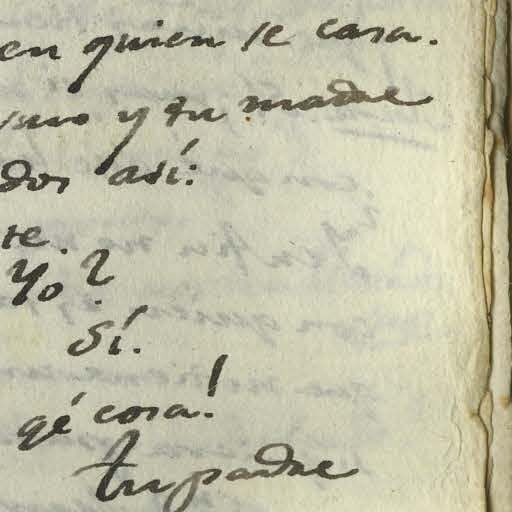 en quien se casa.
smo y tu madre
dos así:
te.
Yo?
Sí.
qé cosa!
tu padre